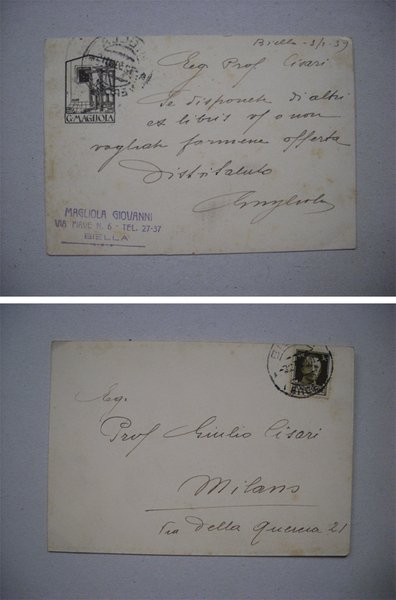 Biella - 3/1-39
G. MAGLIOLA
Eg. Prof Cisari
Se dispone di altri
ex libris
vogliate farmene offerta
Dist. Saluto
Magliola
MAGLIOLA GIOVANNI
VIA PIAVE N. 6 - TEL. 27-37
BIELLA
Eg.
Prof Giulio Cisari
Milano
Via della Quercia 21